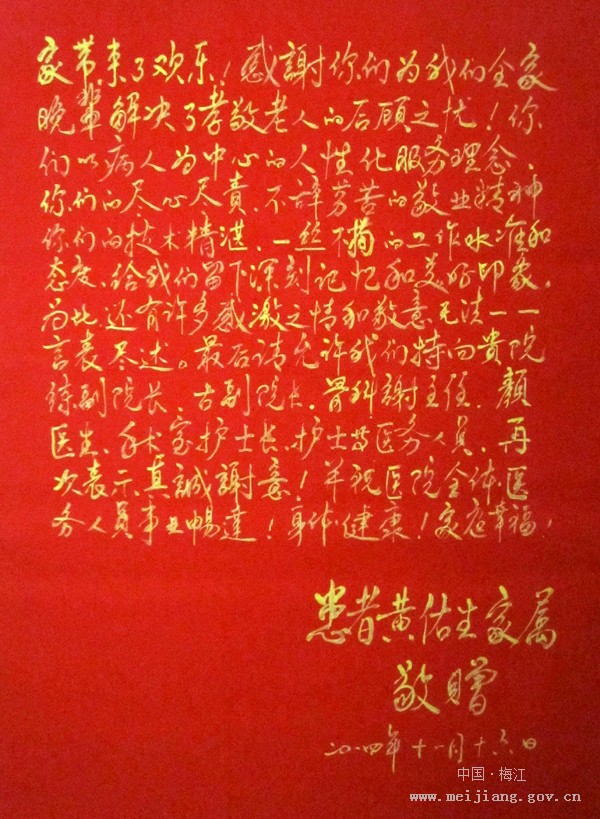 家带来了欢乐！感謝你们为我们全家
晚辈解决了孝敬老人的后顾之忧！你
们以病人为中心的人性化服务理念、
你们的尽心尽责、不辞劳苦的敬业精神
你们的技术精湛、一丝不苟的工作水准和
态度、给我们留下深刻记忆和美好印象，
为此还有许多感激之情和敬意无法一一
言表尽达。最后请允许我们特向贵院
练副院长、古副院长、骨科謝主任、顏
医生、手术室护士长、护士等医务人员、再
次表示真誠謝意！并祝医院全体医
务人员事业畅達！身体健康！家庭幸福！
患者黄佑生家属
敬贈
二〇一四年十一月十六日
中国·梅江
www.meijiang.gov.cn